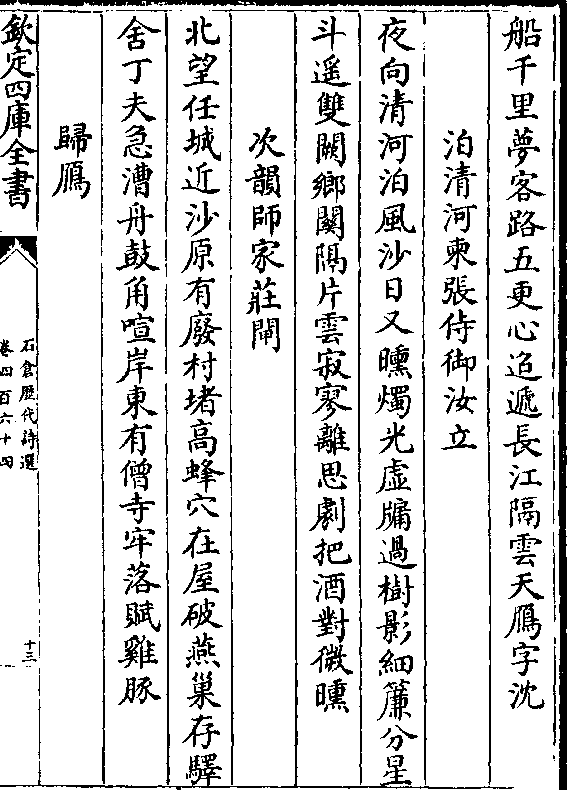 船千里夢客路五更心迢遞長江隔雲天鴈字沈
泊清河柬張侍御汝立
夜向清河泊風沙日又曛燭光虛牖過樹影細簾分星
斗遥雙闕鄉關隔片雲寂寥離思劇把酒對微曛
次韻師家莊閘
北望任城近沙原有廢村堵高蜂穴在屋破燕巢存驛
舍丁夫急漕舟鼓角喧岸東有僧寺牢落賦雞豚
歸鴈
欽定四庫全書
石倉歴代詩選
卷四百六十四
十三